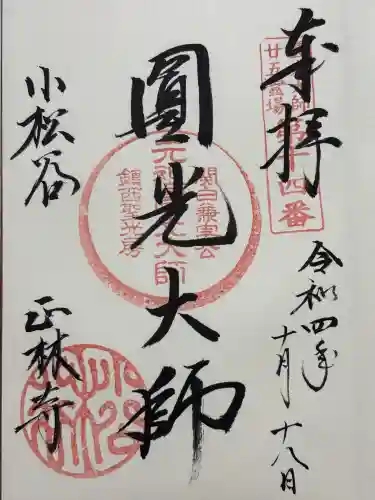 奉拝
廿五霊場
第十四番
令和四年
十月十八日
圓光大師
元祖大師
関白兼実公
鎮西聖光房
小松谷
正林寺